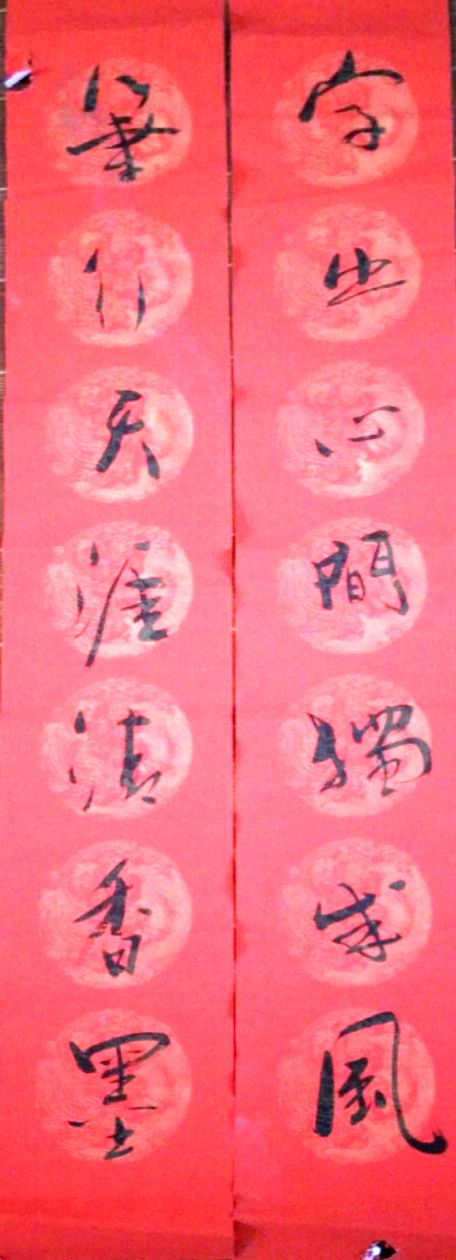 字出心間獨成風
筆行天涯清香墨